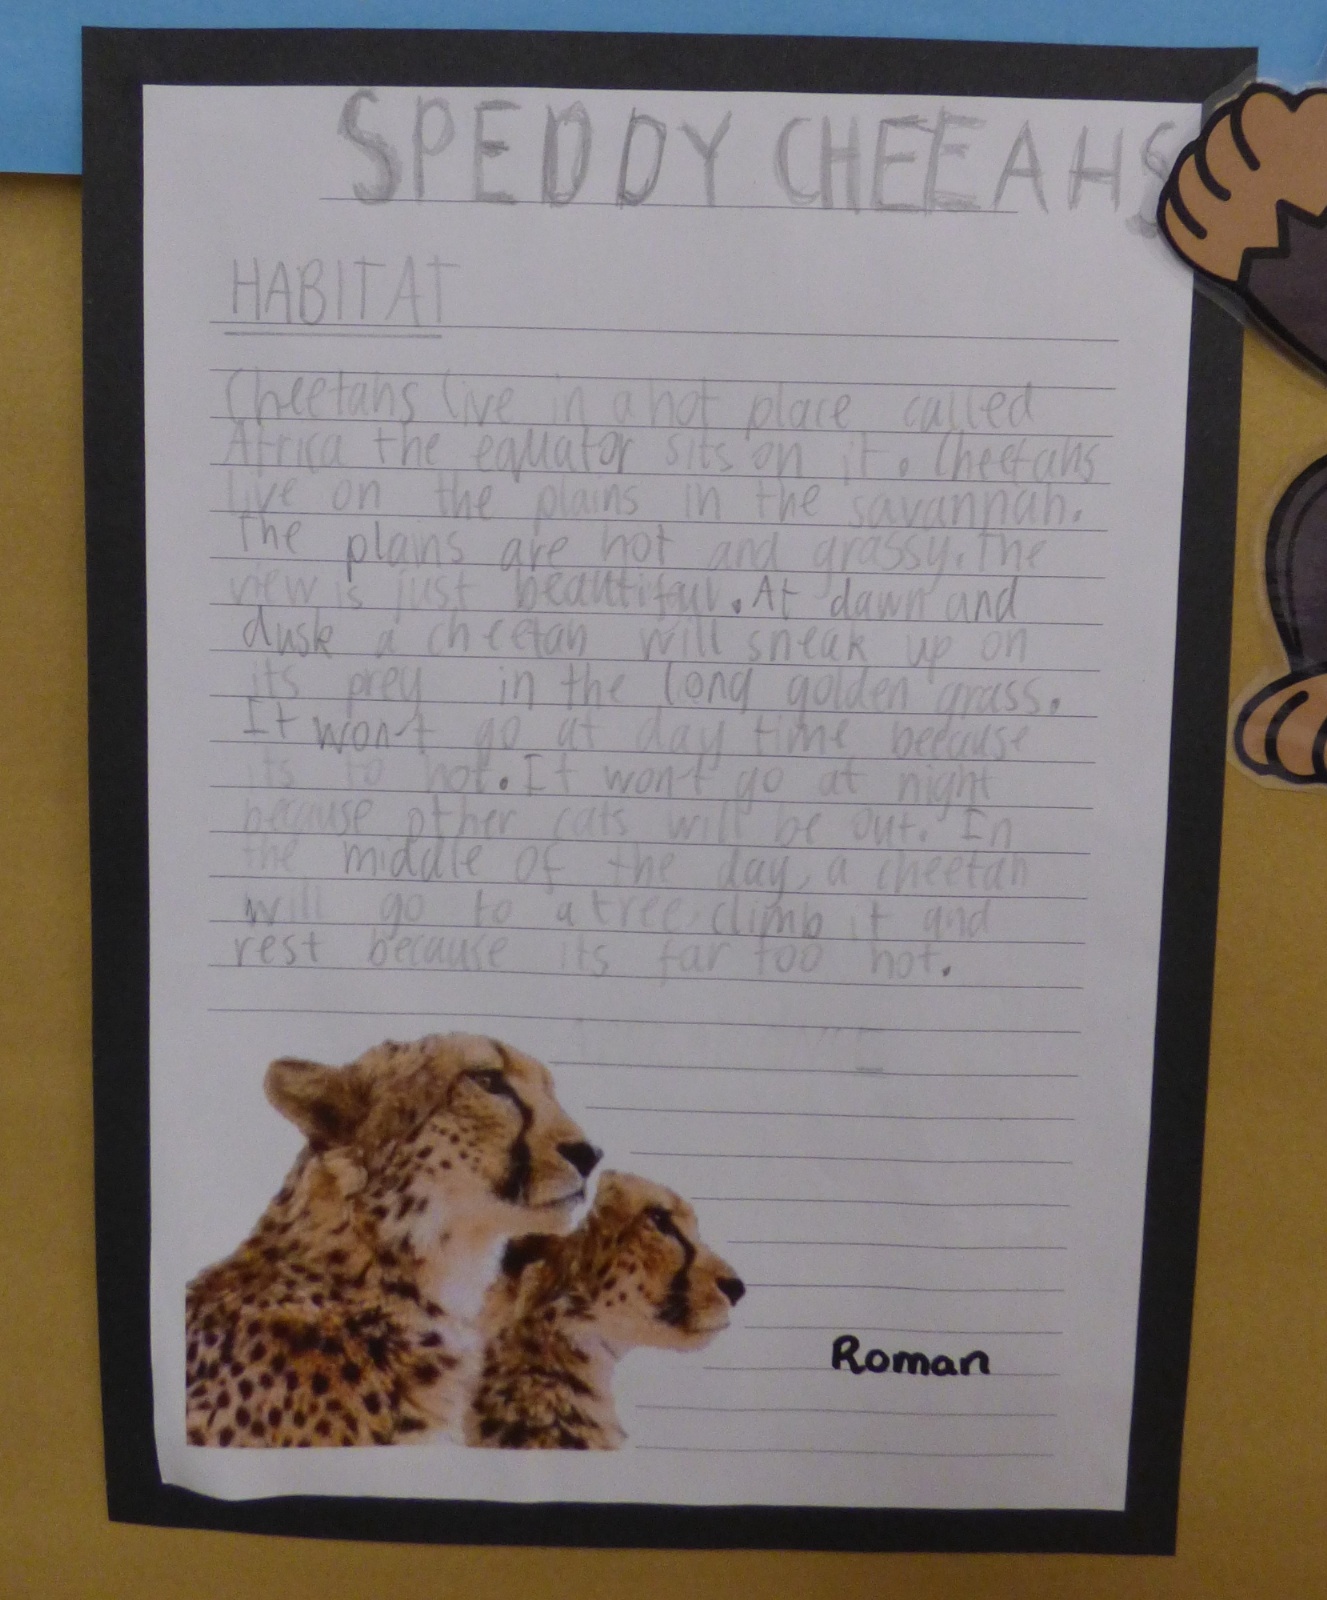 SPEDDY CHEEAHS
HABITAT
Cheetahs live in a hot place called
Africa the equator sits on it. Cheetahs
live on the plains in the savannah.
The plains are hot and grassy. The
view is just beautiful. At dawn and
dusk a cheetah will sneak up on
its prey in the long golden grass.
It won't go at day time because
its to hot. It won't go at night
because other cats will be out. In
the middle of the day, a cheetah
will go to a tree, climb it and
rest because its far too hot.
Roman